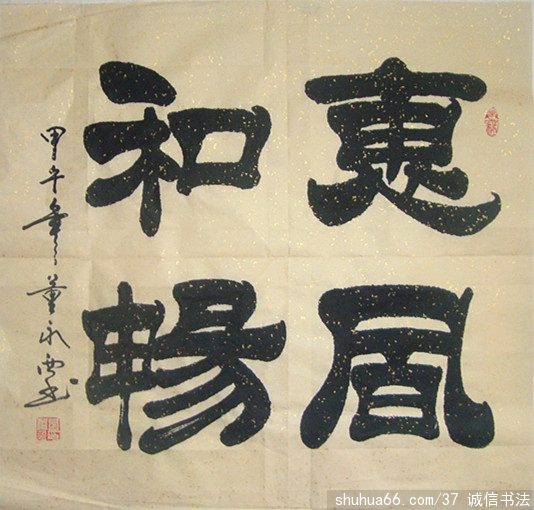 惠風
和暢
甲午年董永
shuhua66.com/37 诚信书法